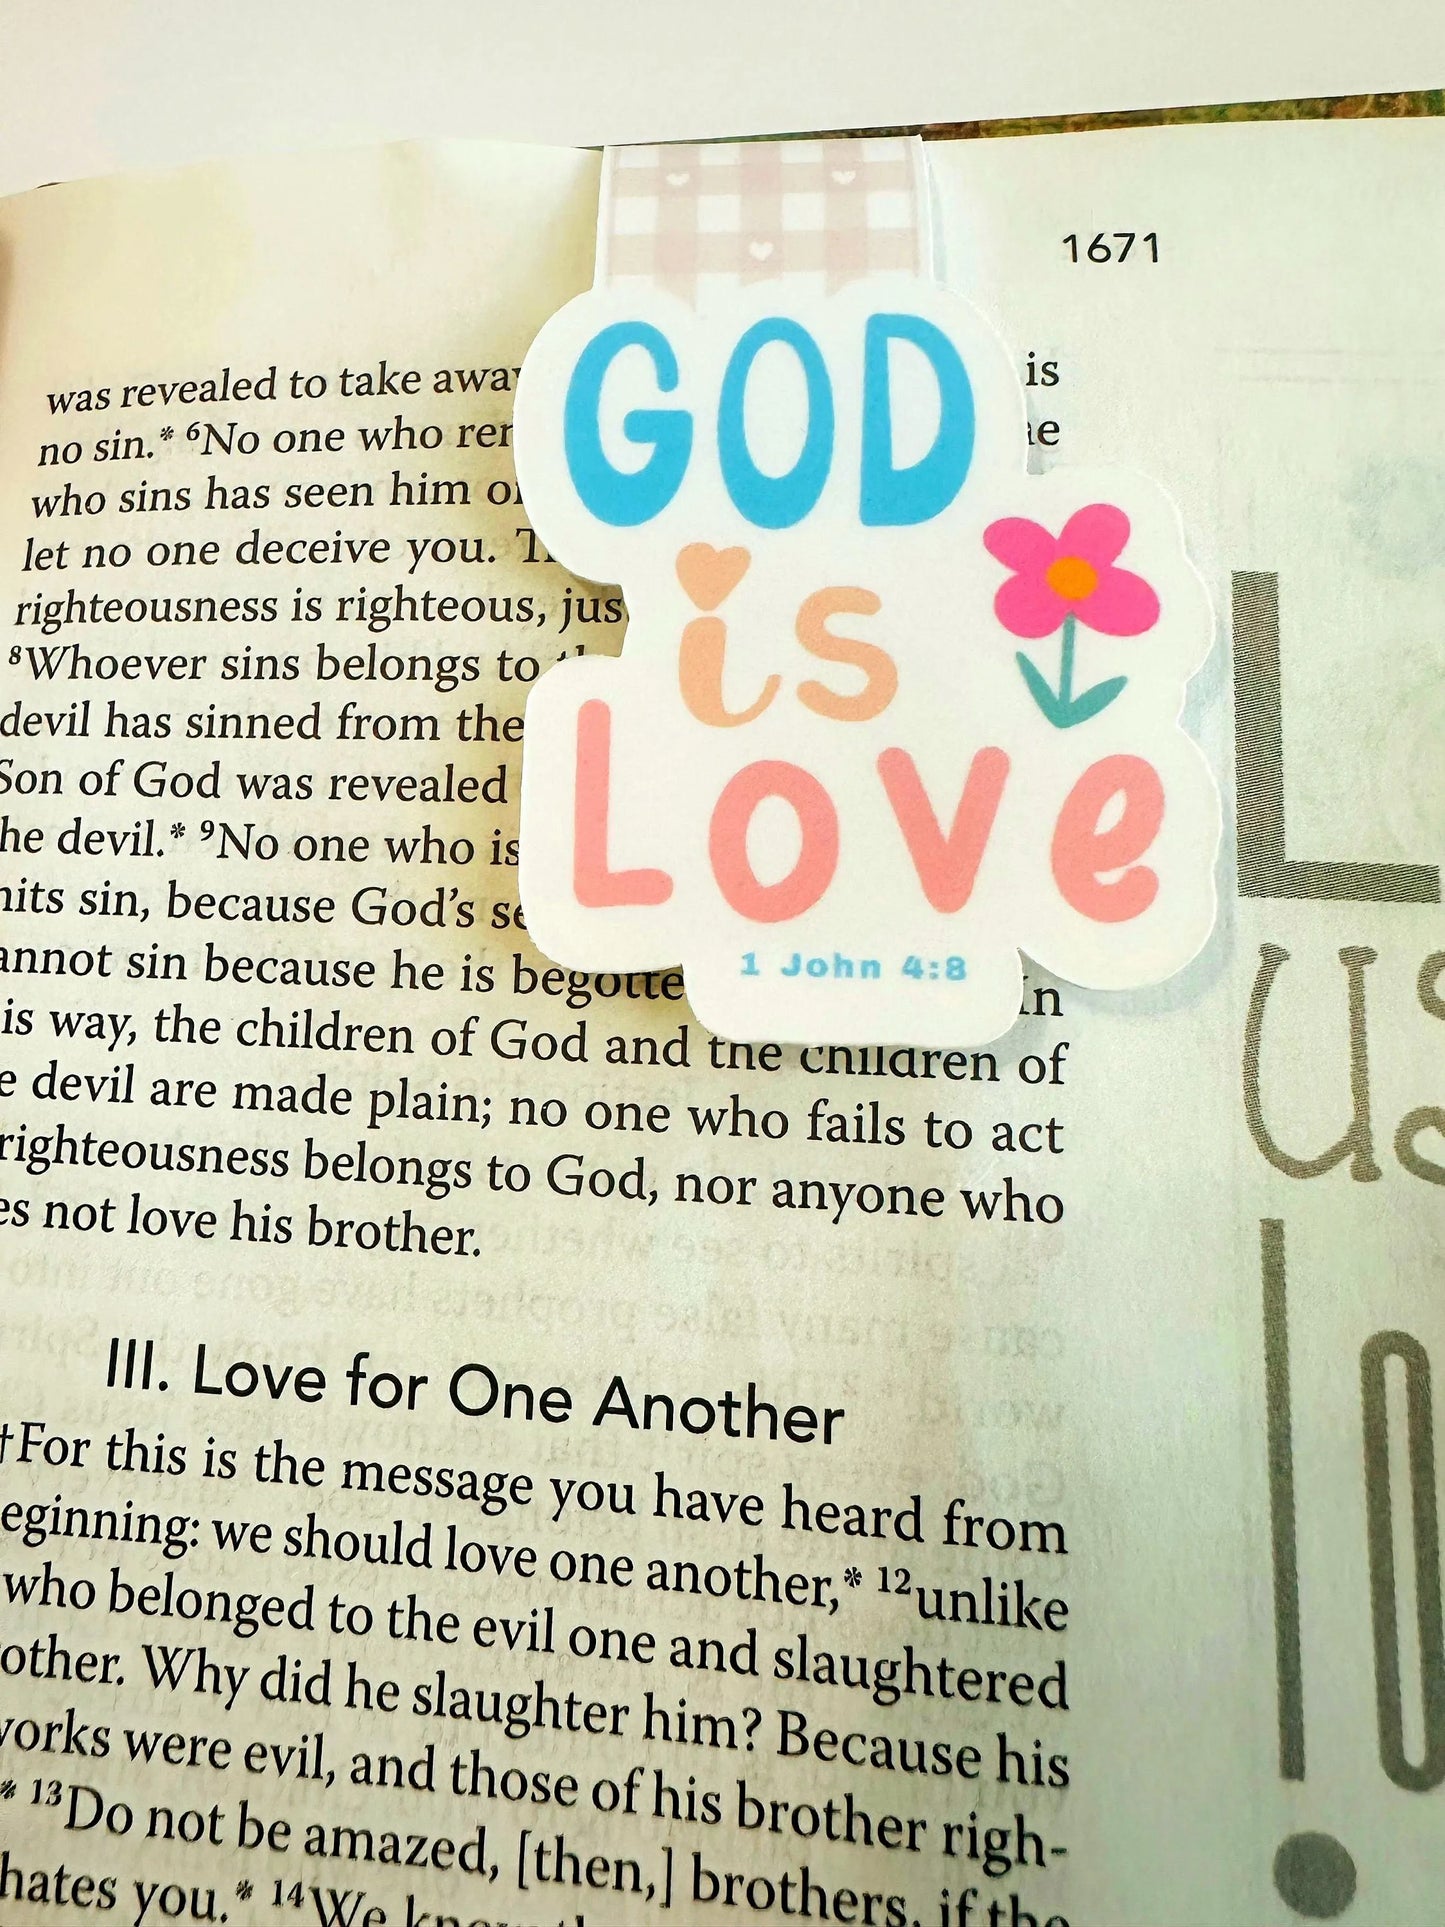 1671
GOD
is
Love
1 John 4:8
was revealed to take away is
no sin.* ⁶No one who
who sins has seen him
let no one deceive you.
righteousness is righteous,
⁸Whoever sins belongs to
devil has sinned from the
Son of God was revealed
he devil.* ⁹No one who is
sin, because God's
sin because he is
is way, the children of God and the children of
devil are made plain; no one who fails to act
righteousness belongs to God, nor anyone who
not love his brother.
III. Love for One Another
†For this is the message you have heard from
eginning: we should love one another,* ¹²unlike
who belonged to the evil one and slaughtered
other. Why did he slaughter him? Because his
works were evil, and those of his brother righ-
* ¹³Do not be amazed, [then,] brothers, if the
hates you.* ¹⁴We
L
us